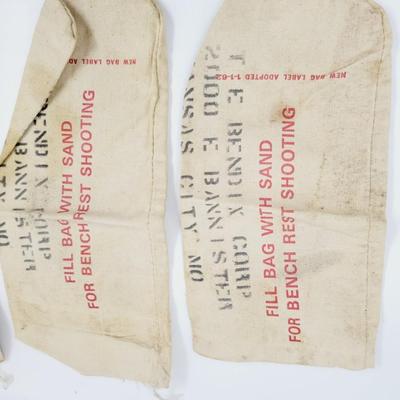 NEW BAG LABEL
BENDIX CORP
BANNISTER
FILL BAG WITH SAND
FOR BENCH REST SHOOTING
NEW BAG LABEL ADOPTED 1-1-62
E BENDIX CORP
2000 E BANNISTER
ANSAS CITY MO
FILL BAG WITH SAND
FOR BENCH REST SHOOTING